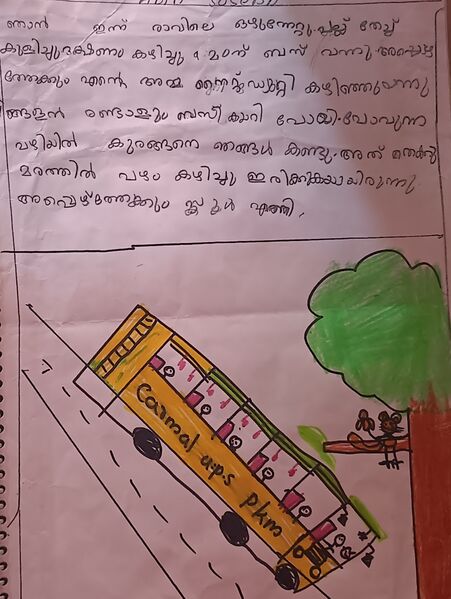 ഞാൻ ഇന്ന് രാവിലെ എഴുന്നേറ്റു. പല്ല് തേച്ച്
കുളിച്ചു ഭക്ഷണം കഴിച്ചു ബസ് വന്നു. അപ്പോഴ
ത്തേക്കും എന്റെ അമ്മ നൈറ്റ്ഡ്യൂട്ടി കഴിഞ്ഞുവന്നു
ഞങ്ങൾ രണ്ടാളും ബസിൽ കയറി പോയി. പോവുന്ന
വഴിയിൽ കുരങ്ങനെ ഞങ്ങൾ കണ്ടു. അത്
മരത്തിൽ പഴം കഴിച്ചു ഇരിക്കുകയായിരുന്നു.
അപ്പോഴത്തേക്കും സ്കൂൾ എത്തി.
Carmal aps pkm